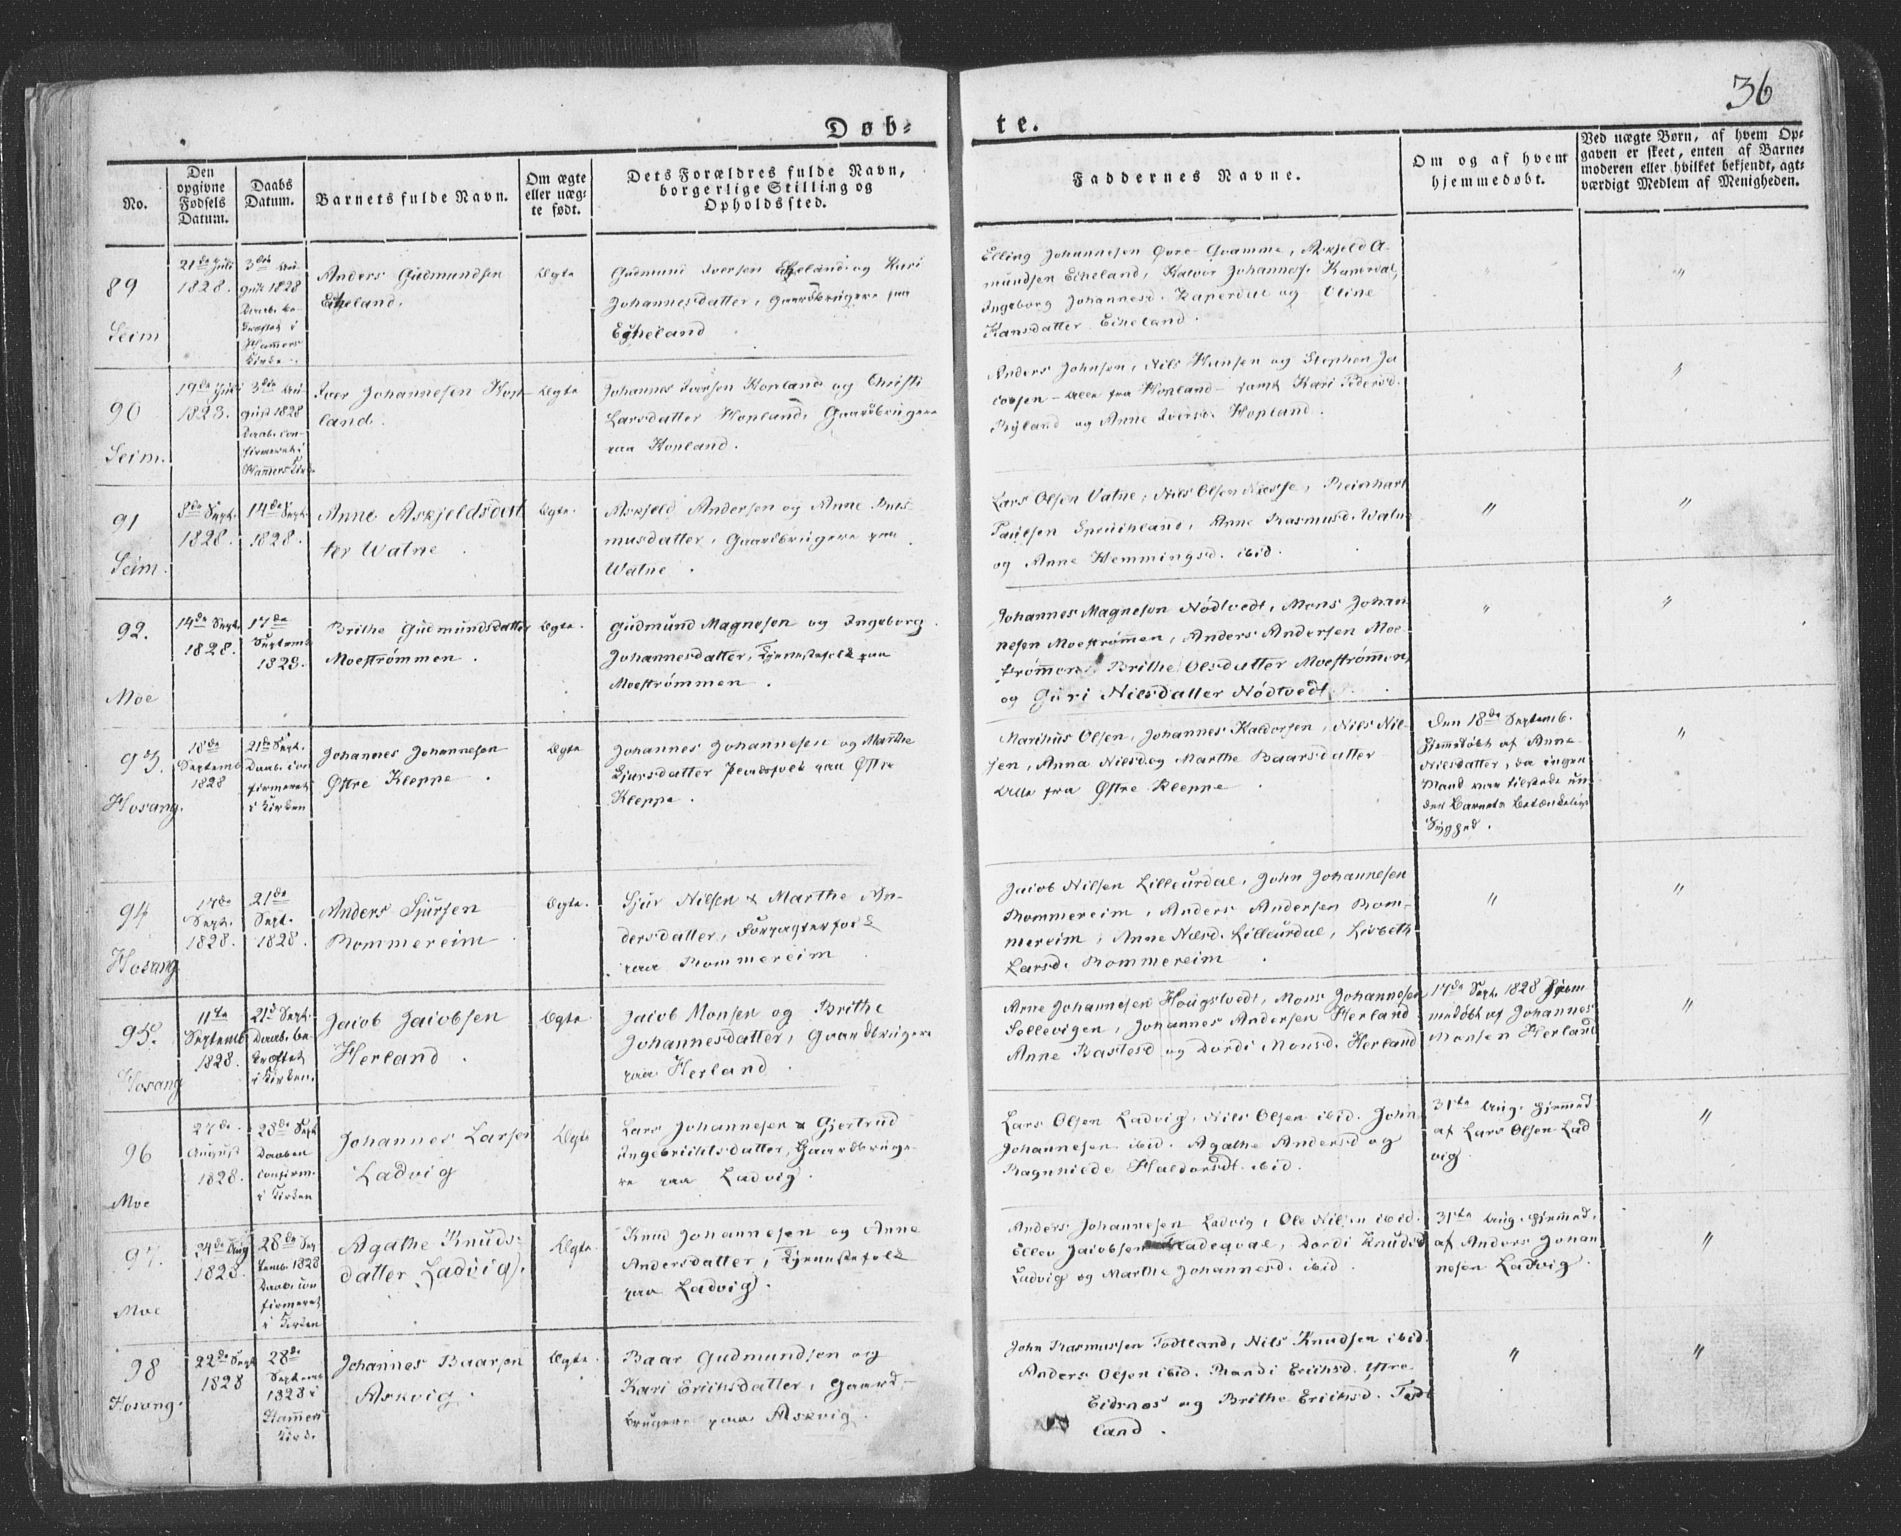 36
Døb-
te.
No.
Den
opgivne
Fødsels
Datum.
Daabs
Datum.
Barnets fulde Navn.
Om ægte
eller uæg-
te født.
Dets Forældres fulde Navn,
borgerlige Stilling og
Opholdssted.
Faddernes Navne.
Om og af hvem
hjemmedøbt.
Ved uægte Børn, af hvem Op-
gaven er skeet, enten af Barne-
moderen eller hvilket bekjendt, agt-
værdigt Medlem af Menigheden.
89
Seim
21de Juli
1828.
3die Au-
gust 1828
Daab. be-
kræftet i
Hammers
Kirke.
Anders Gudmundsen
Eikeland.
Ægte
Gudmund Iversen Eikeland og Kari
Johannesdatter, Gaardbrugere paa
Eikeland.
Elling Johannesen Øvre Qvamme, Askjeld A-
mundsen Eikeland,
Ingeborg Johannesd. og Oline
Hansdatter Eikeland.
"
90
Seim.
19de Juli
1828.
3die Au-
gust 1828
Daab. con-
firmeret i
Hammers Kirk.
Iver Johannesen Hop-
land.
Ægte
Johannes Iversen Hopland og Christi
Larsdatter Hopland, Gaardbrugere
paa Hopland.
Anders Johnsen, Nils Hansen og Stephen Ja-
cobsen - alle fra Hopland - samt Kari Pedersd.
Ryland og Anne Iversd. Hopland.
"
91
Seim.
8de Sept.
1828.
14de Sept.
1828.
Anne Askjeldsdat-
ter Watne.
Ægte.
Askjeld Andersen og Anne Ras-
musdatter, Gaardbrugere paa
Watne.
Lars Olsen Vatne, Nils Olsen Reinhart
Paulsen Anne Rasmusd. Watne
og Anne Hemmingsd. ibid.
"
"
92.
Moe
14de Sept.
1828.
17de
Septemb.
1828.
Brithe Gudmundsdatter
Moestrømmen.
Ægte.
Gudmund Magnesen og Ingeborg
Johannesdatter, Tjenestefolk paa
Moestrømmen.
Johannes Magnesen Nødtvedt, Mons Johan-
nesen Moestrømmen, Anders Andersen Moe-
strømmen, Brithe Olsdatter Moestrømmen,
og Guri Nilsdatter Nødtvedt.
"
"
93.
Hosang.
18de
Septemb.
1828
21de Sept.
Daab. con-
firmeret
i Kirken
Johannes Johannesen
Østre Kleppe.
Ægte
Johannes Johannesen og Marthe
Sjursdatter paa Østre
Kleppe.
Marthus Olsen, Johannes Haldorsen, Nils Nil-
sen, Anna Nilsd. og Marthe Baarsdatter
alle fra Østre Kleppe.
Den 18de Septemb.
hjemmedøbt af Anne
Nilsdatter, da ingen
Mand var tilstede un-
der Barnets betændelige
Sygdom.
"
94
Hosang
17de
Sept.
1828.
21de
Sept.
1828.
Anders Sjursen
Rommereim
Ægte.
Sjur Nilsen & Marthe An-
dersdatter, Forpagterfolk
paa Rommereim
Jacob Nilsen Lilleurdal, John Johannesen
Rommereim, Anders Andersen Rom-
mereim, Anne Nilsd. Lilleurdal, Lisbeth
Larsd. Rommereim.
"
"
95.
Hosang
11te
Septemb.
1828.
21de Sept.
Daab. be-
kræftet
i Kirken.
Jacob Jacobsen
Herland.
Ægte
Jacob Monsen og Brithe
Johannesdatter, Gaardbrugere
paa Herland.
Arne Johannesen Hougstvedt, Mons Johannesen
Sellevigen, Johannes Andersen Herland
Anne Bastesd og Dordi Monsd. Herland
17de Sept. 1828 hjem-
medøbt af Johannes
Monsen Herland
"
96
Moe
27de
August
1828.
28de Sept
Daaben
confirm-
i Kirken
Johannes Larsen
Ladvig
Ægte
Lars Johannesen & Gjertrud
Ingebrichtsdatter, Gaardbruge-
re paa Ladvig.
Lars Olsen Ladvig, Nils Olsen ibid. John
Johannesen ibid. Agathe Andersd og
Ragnhilde Haldorsdt. ibid.
31te Aug. hjemmed.
af Lars Olsen Lad-
vig
"
97.
Moe
24de Aug
1828.
28de Sep-
temb. 1828
Daab. con-
firmeret
i Kirken
Agathe Knuds-
datter Ladvig.
Ægte.
Knud Johannesen og Anne
Andersdatter, Tjenestefolk
paa Ladvig.
Anders Johannesen Ladvig, Ole Nilsen ibid.
Ellev Jacobsen Dordi Knudsd
Ladvig og Marthe Johannesd. ibid.
31te Aug. hjemmed.
af Anders Johan-
nesen Ladvig.
"
98
Hosang.
22de Sept
1828
28de
Septemb.
1828 i
Hammers
Kirk.
Johannes Baarsen
Askvig.
Ægte.
Baar Gudmundsen og
Kari Erichsdatter, Gaard-
brugere paa Askvig.
John Rasmussen Todtland, Nils Knudsen ibid.
Anders Olsen ibid. Randi Erichsd. Yttre
Eidrnæs og Brithe Erichsd. Todt-
land.
"
"